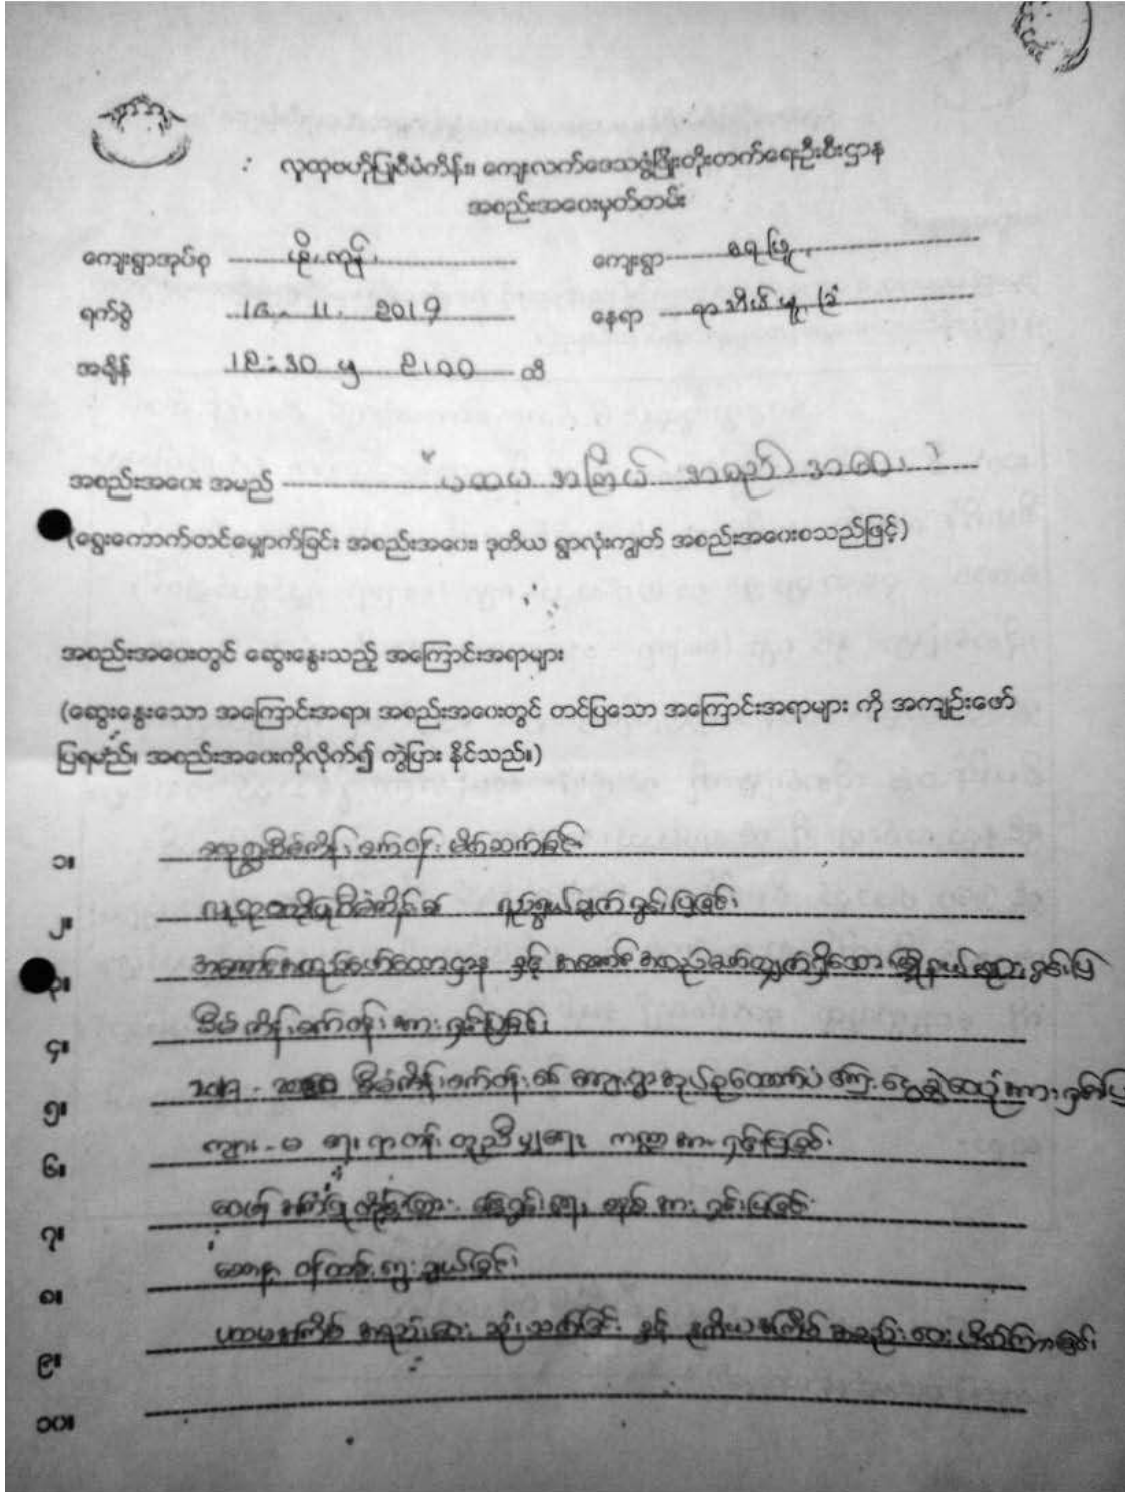 လူထုဗဟိုပြုစီမံကိန်း၊ ကျေးလက်ဒေသဖွံ့ဖြိုးတိုးတက်ရေးဦးစီးဌာန
အစည်းအဝေးမှတ်တမ်း
ကျေးရွာအုပ်စု ကျေးရွာ
ရက်စွဲ 16. 11. 2019 နေရာ
အချိန် ၁၂:၃၀ မှ ၂:၀၀ ထိ
အစည်းအဝေး အမည် " ပထမ အကြိမ် အစည်း အဝေး "
(ရွေးကောက်တင်မြှောက်ခြင်း အစည်းအဝေး၊ ဒုတိယ ရွာလုံးကျွတ် အစည်းအဝေးစသည်ဖြင့်)
အစည်းအဝေးတွင် ဆွေးနွေးသည့် အကြောင်းအရာများ
(ဆွေးနွေးသော အကြောင်းအရာ၊ အစည်းအဝေးတွင် တင်ပြသော အကြောင်းအရာများ ကို အကျဉ်းဖော်
ပြရမည်၊ အစည်းအဝေးကိုလိုက်၍ ကွဲပြား နိုင်သည်။)
၁။ စီမံကိန်း ဝက်ဝန်း မိတ်ဆက်ခြင်း
၂။ လူထုဗဟိုပြုစီမံကိန်း၏ ရည်ရွယ်ချက် ရှင်းပြခြင်း
၃။ အကောင်အထည်ဖော်သောဌာန နှင့် အကောင်အထည်ဖော်လျက်ရှိသော မြို့နယ်များ ရှင်းပြ
၄။ စီမံကိန်း စက်ဝန်း အား ရှင်းပြခြင်း
၅။ စီမံကိန်း စက်ဝန်း၏ ကျေးရွာအုပ်စုထောက်ပံ့ကြေး ငွေခွဲဝေပုံအား ရှင်းပြ
၆။ ကျား - မ ရေး ရာ တန်း တူညီ မျှရေး ကဏ္ဍ အား ရှင်းပြခြင်း
၇။ ဝေဖန် အကြံပြု တိုင်ကြား ဖြေရှင်း ရေး အား ရှင်းပြခြင်း
၈။ စေတနာ့ ဝန်ထမ်း ရွေး ချယ်ခြင်း
၉။ ပထမအကြိမ် အစည်းအဝေး ဆုံးသတ်ခြင်း နှင့် ဒုတိယအကြိမ် အစည်းအဝေး ဖိတ်ကြားခြင်း
၁၀။